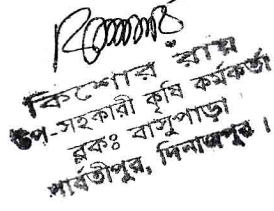 কিশোর রায়
উপ-সহকারী কৃষি কর্মকর্তা
ব্লকঃ বাসুপাড়া
পার্বতীপুর, দিনাজপুর।